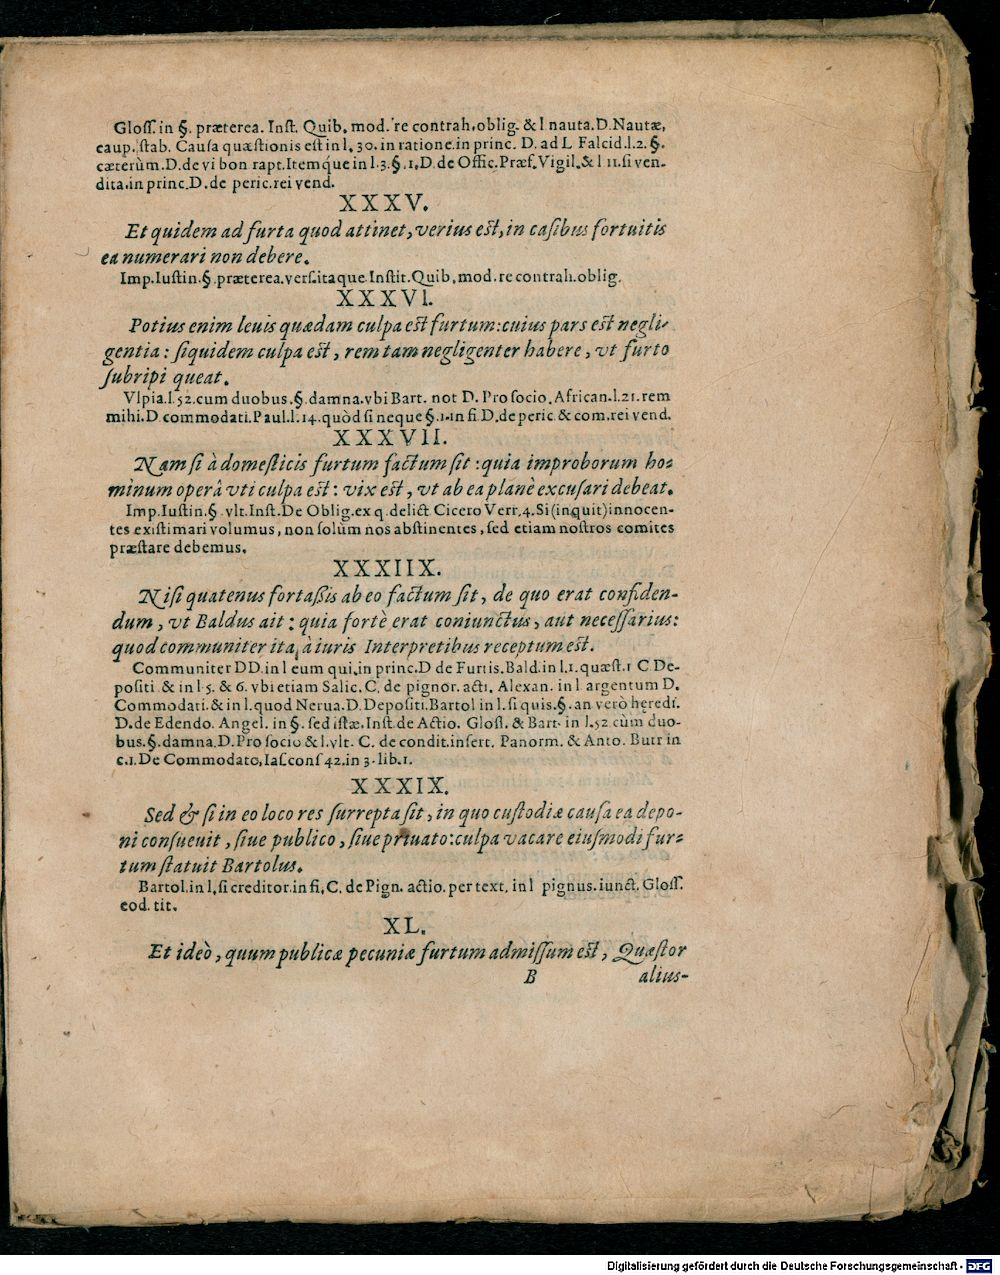 Gloſſ. in §. præterea. Inſt. Quib. mod. re contrah. oblig. & l nauta. D. Nautæ,
caup. ſtab. Cauſa quæſtionis eſt in l. 30. in ratione. in princ. D. ad L Falcid. l. 2. §.
cæterùm. D. de vi bon rapt. Itemq́ue in l. 3. §. 1. D. de Offic. Præf. Vigil. & l 11. ſi ven-
dita. in princ. D. de peric. rei vend.
XXXV.
Et quidem ad furta quod attinet, verius eſt, in caſibus fortuitis
ea numerari non debere.
Imp. Iuſtin. §. præterea. verſ. itaque. Inſtit. Quib. mod. re contrah. oblig.
XXXVI.
Potius enim leuis quædam culpa eſt furtum: cuius pars eſt negli-
gentia: ſiquidem culpa eſt, rem tam negligenter habere, vt furto
ſubripi queat.
Vlpia. l. 52. cum duobus. §. damna. vbi Bart. not D. Pro ſocio. African. l. 21. rem
mihi. D commodati. Paul. l. 14. quòd ſi neque §. 1. in fi D. de peric. & com. rei vend.
XXXVII.
Nam ſi à domeſticis furtum factum ſit: quia improborum ho-
minum operâ vti culpa eſt: vix eſt, vt ab ea planè excuſari debeat.
Imp. Iuſtin. §. vlt. Inſt. De Oblig. ex q. delict Cicero Verr. 4. Si (inquit) innocen-
tes exiſtimari volumus, non ſolùm nos abſtinentes, ſed etiam noſtros comites
præſtare debemus.
XXXIIX.
Niſi quatenus fortaßis ab eo factum ſit, de quo erat confiden-
dum, vt Baldus ait: quia fortè erat coniunctus, aut neceſſarius:
quod communiter ita, à iuris Interpretibus receptum eſt.
Communiter DD. in l eum qui. in princ. D de Furtis. Bald. in l. 1. quæſt. 1 C De-
poſiti & in l 5. & 6. vbi etiam Salic. C. de pignor. acti. Alexan. in l argentum D.
Commodati. & in l. quod Nerua. D. Depoſiti. Bartol in l. ſi quis. §. an verò hęredi.
D. de Edendo. Angel. in §. ſed iſtæ. Inſt. de Actio. Gloſſ. & Bart. in l. 52 cùm duo-
bus. §. damna. D. Pro ſocio & l. vlt. C. de condit. inſert. Panorm. & Anto. Butr in
c. 1. De Commodato, Iaſ. conſ 42. in 3. lib. 1.
XXXIX.
Sed & ſi in eo loco res ſurrepta ſit, in quo cuſtodiæ cauſa ea depo-
ni conſueuit, ſiue publico, ſiue priuato: culpa vacare eiuſmodi fur-
tum ſtatuit Bartolus.
Bartol. in l. ſi creditor. in fi. C. de Pign. actio. per text. in l pignus. iunct. Gloſſ.
eod. tit.
XL.
Et ideò, quum publicæ pecuniæ furtum admiſſum eſt, Quæſtor
B alius-
Digitalisierung gefördert durch die Deutsche Forschungsgemeinschaft - DFG